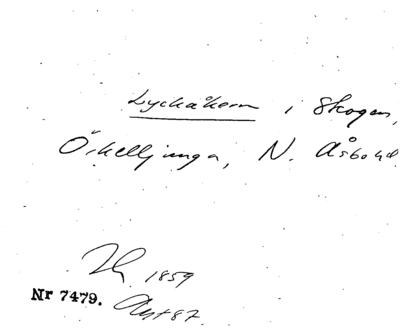 Lyckåkern i Skogen,
Örkelljunga, N. Åsbo hd
1859
Nr 7479.